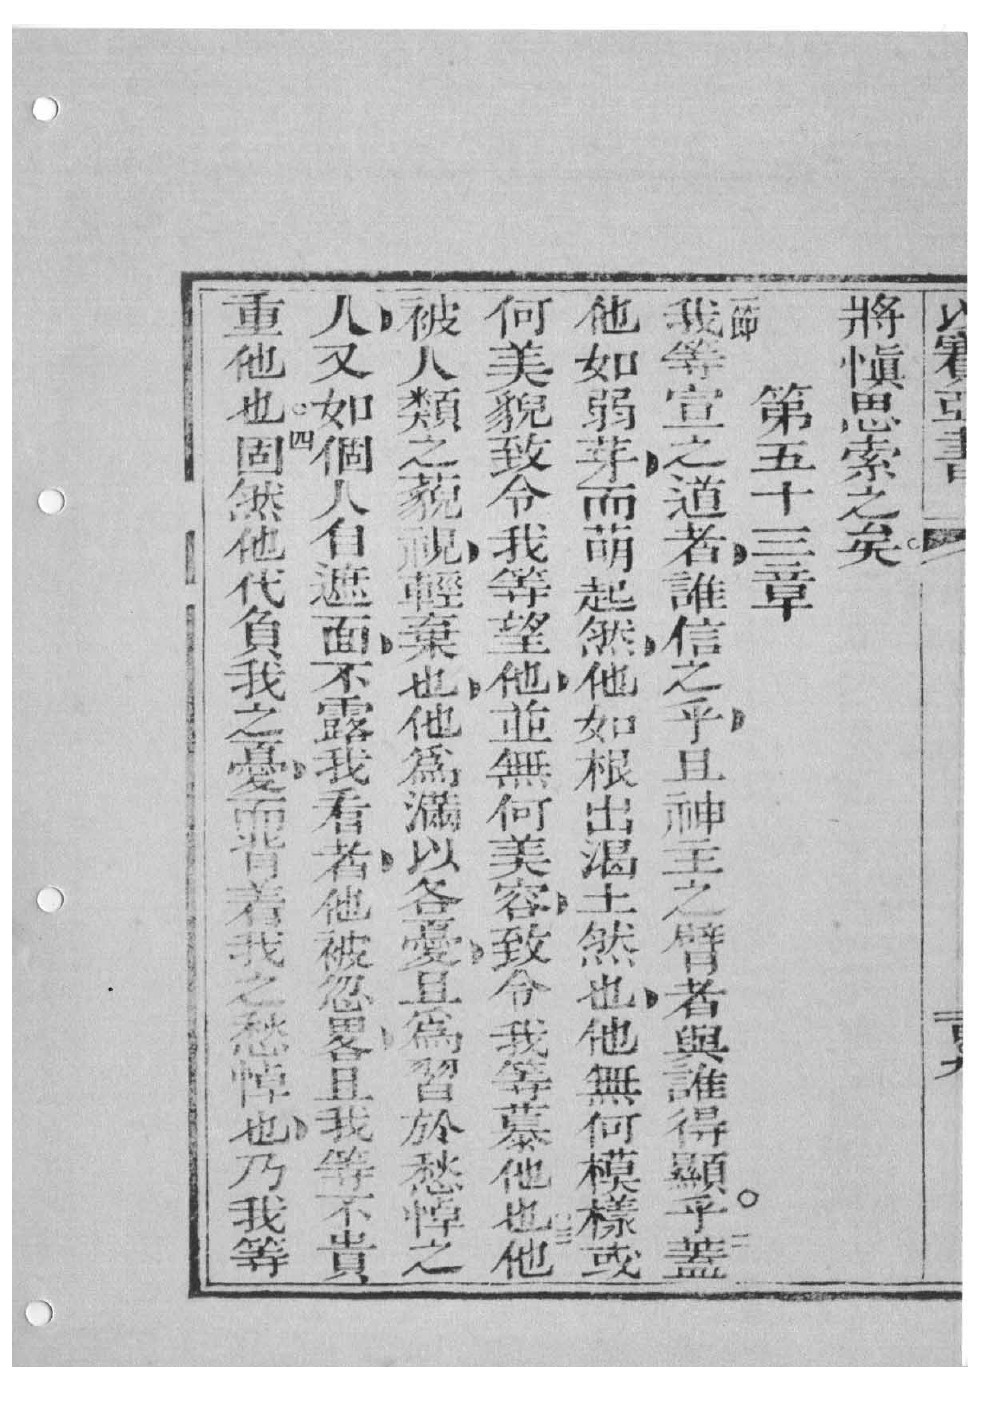 以賽亞書
將愼思索之矣。
第五十三章
一節我等宣之道者、誰信之乎、且神主之臂者與誰得顯乎。二蓋
他如弱芽、而萌起然、他如根出渴土然也、他無何模樣或
何美貌致令我等望他、並無何美容、致令我等慕他也。三他
被人類之藐視、輕棄也、他爲滿以各憂、且爲習於愁悼之
人、又如個人自遮面、不露我看者、他被忽畧、且我等不貴
重他也。四固然他代負我之憂、而背着我之愁悼也、乃我等